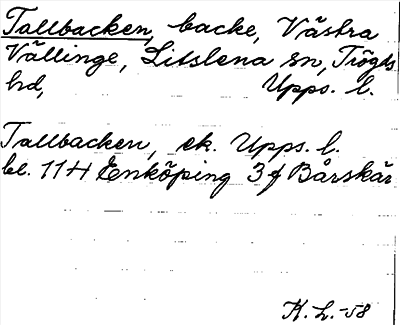 Tallbacken, backe, Västra
Vällinge, Litslena sn, Trögds
hd, Upps. l.
Tallbacken, ek. Upps. l.
bl. 11H Enköping 3f Bårskär
K. L. -58